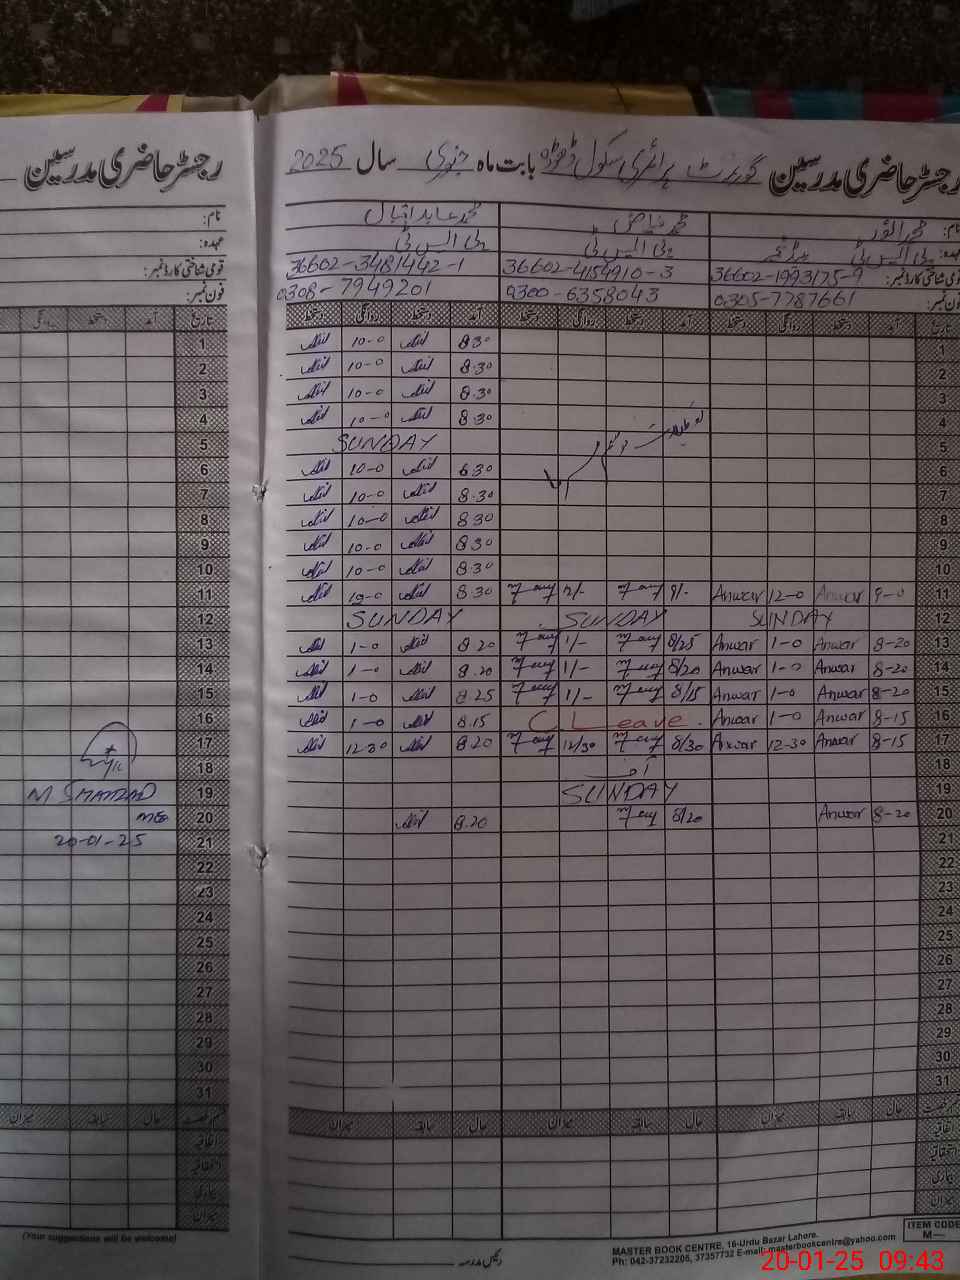 رجسٹر حاضری مدرسین گورنمنٹ پرائمری سکول بابت ماہ جنوری سال 2025
رجسٹر حاضری مدرسین
نام: محمد انور محمد ریاض محمد عابد اقبال
عہدہ: پی ایس ٹی ہیڈ ٹیچر پی ایس ٹی پی ایس ٹی
قومی شناختی کارڈ نمبر: 36602-1993175-9 36602-4154910-3 36602-3481442-1
فون نمبر: 0305-7787661 0300-6358043 0308-7949201
تاریخ آمد دستخط روانگی دستخط آمد دستخط روانگی دستخط آمد دستخط روانگی دستخط
1 8 30 10-0
2 8.30 10-0
3 8.30 10-0
4 8.30 10-0
5 SUNDAY
6 6.30 10-0
7 8.30 10-0
8 8 30 10-0
9 8 30 10-0
10 8.30 10-0
11 9-0 Anwar 12-0 Anwar 9/- 8.30 10-0
12 SUNDAY SUNDAY SUNDAY
13 8-20 Anwar 1-0 Anwar 8/25 1/- 8 20 1-0
14 8-20 Anwar 1-0 Anwar 8/20 1/- 8.20 1-0
15 8-20 Anwar 1-0 Anwar 8/15 1/- 8.25 1-0
16 8-15 Anwar 1-0 Anwar C. Leave. 8.15 1-0
17 8-15 Anwar 12-30 Anwar 8/30 12/30 8.20 12-30
18
19 SUNDAY
20 8-20 Anwar 8/20 8.20
21
22
23
24
25
26
27
28
29
30
31
حال سابقہ میزان حال سابقہ میزان حال سابقہ میزان
اتفاقیہ
استحقاقیہ
بیماری
میزان
نام:
عہدہ:
قومی شناختی کارڈ نمبر:
فون نمبر:
تاریخ آمد دستخط روانگی
1
2
3
4
5
6
7
8
9
10
11
12
13
14
15
16
17
18
19 M SHAHZAD
20
21 20-01-25
22
23
24
25
26
27
28
29
30
31
حال سابقہ میزان
اتفاقیہ
استحقاقیہ
بیماری
میزان
(Your suggestions will be welcome)
ITEM CODE
M—
MASTER BOOK CENTRE, 16-Urdu Bazar Lahore.
Ph: 042-37232205, 37357732 E-mail: masterbookcentre@yahoo.com
20-01-25 09:43